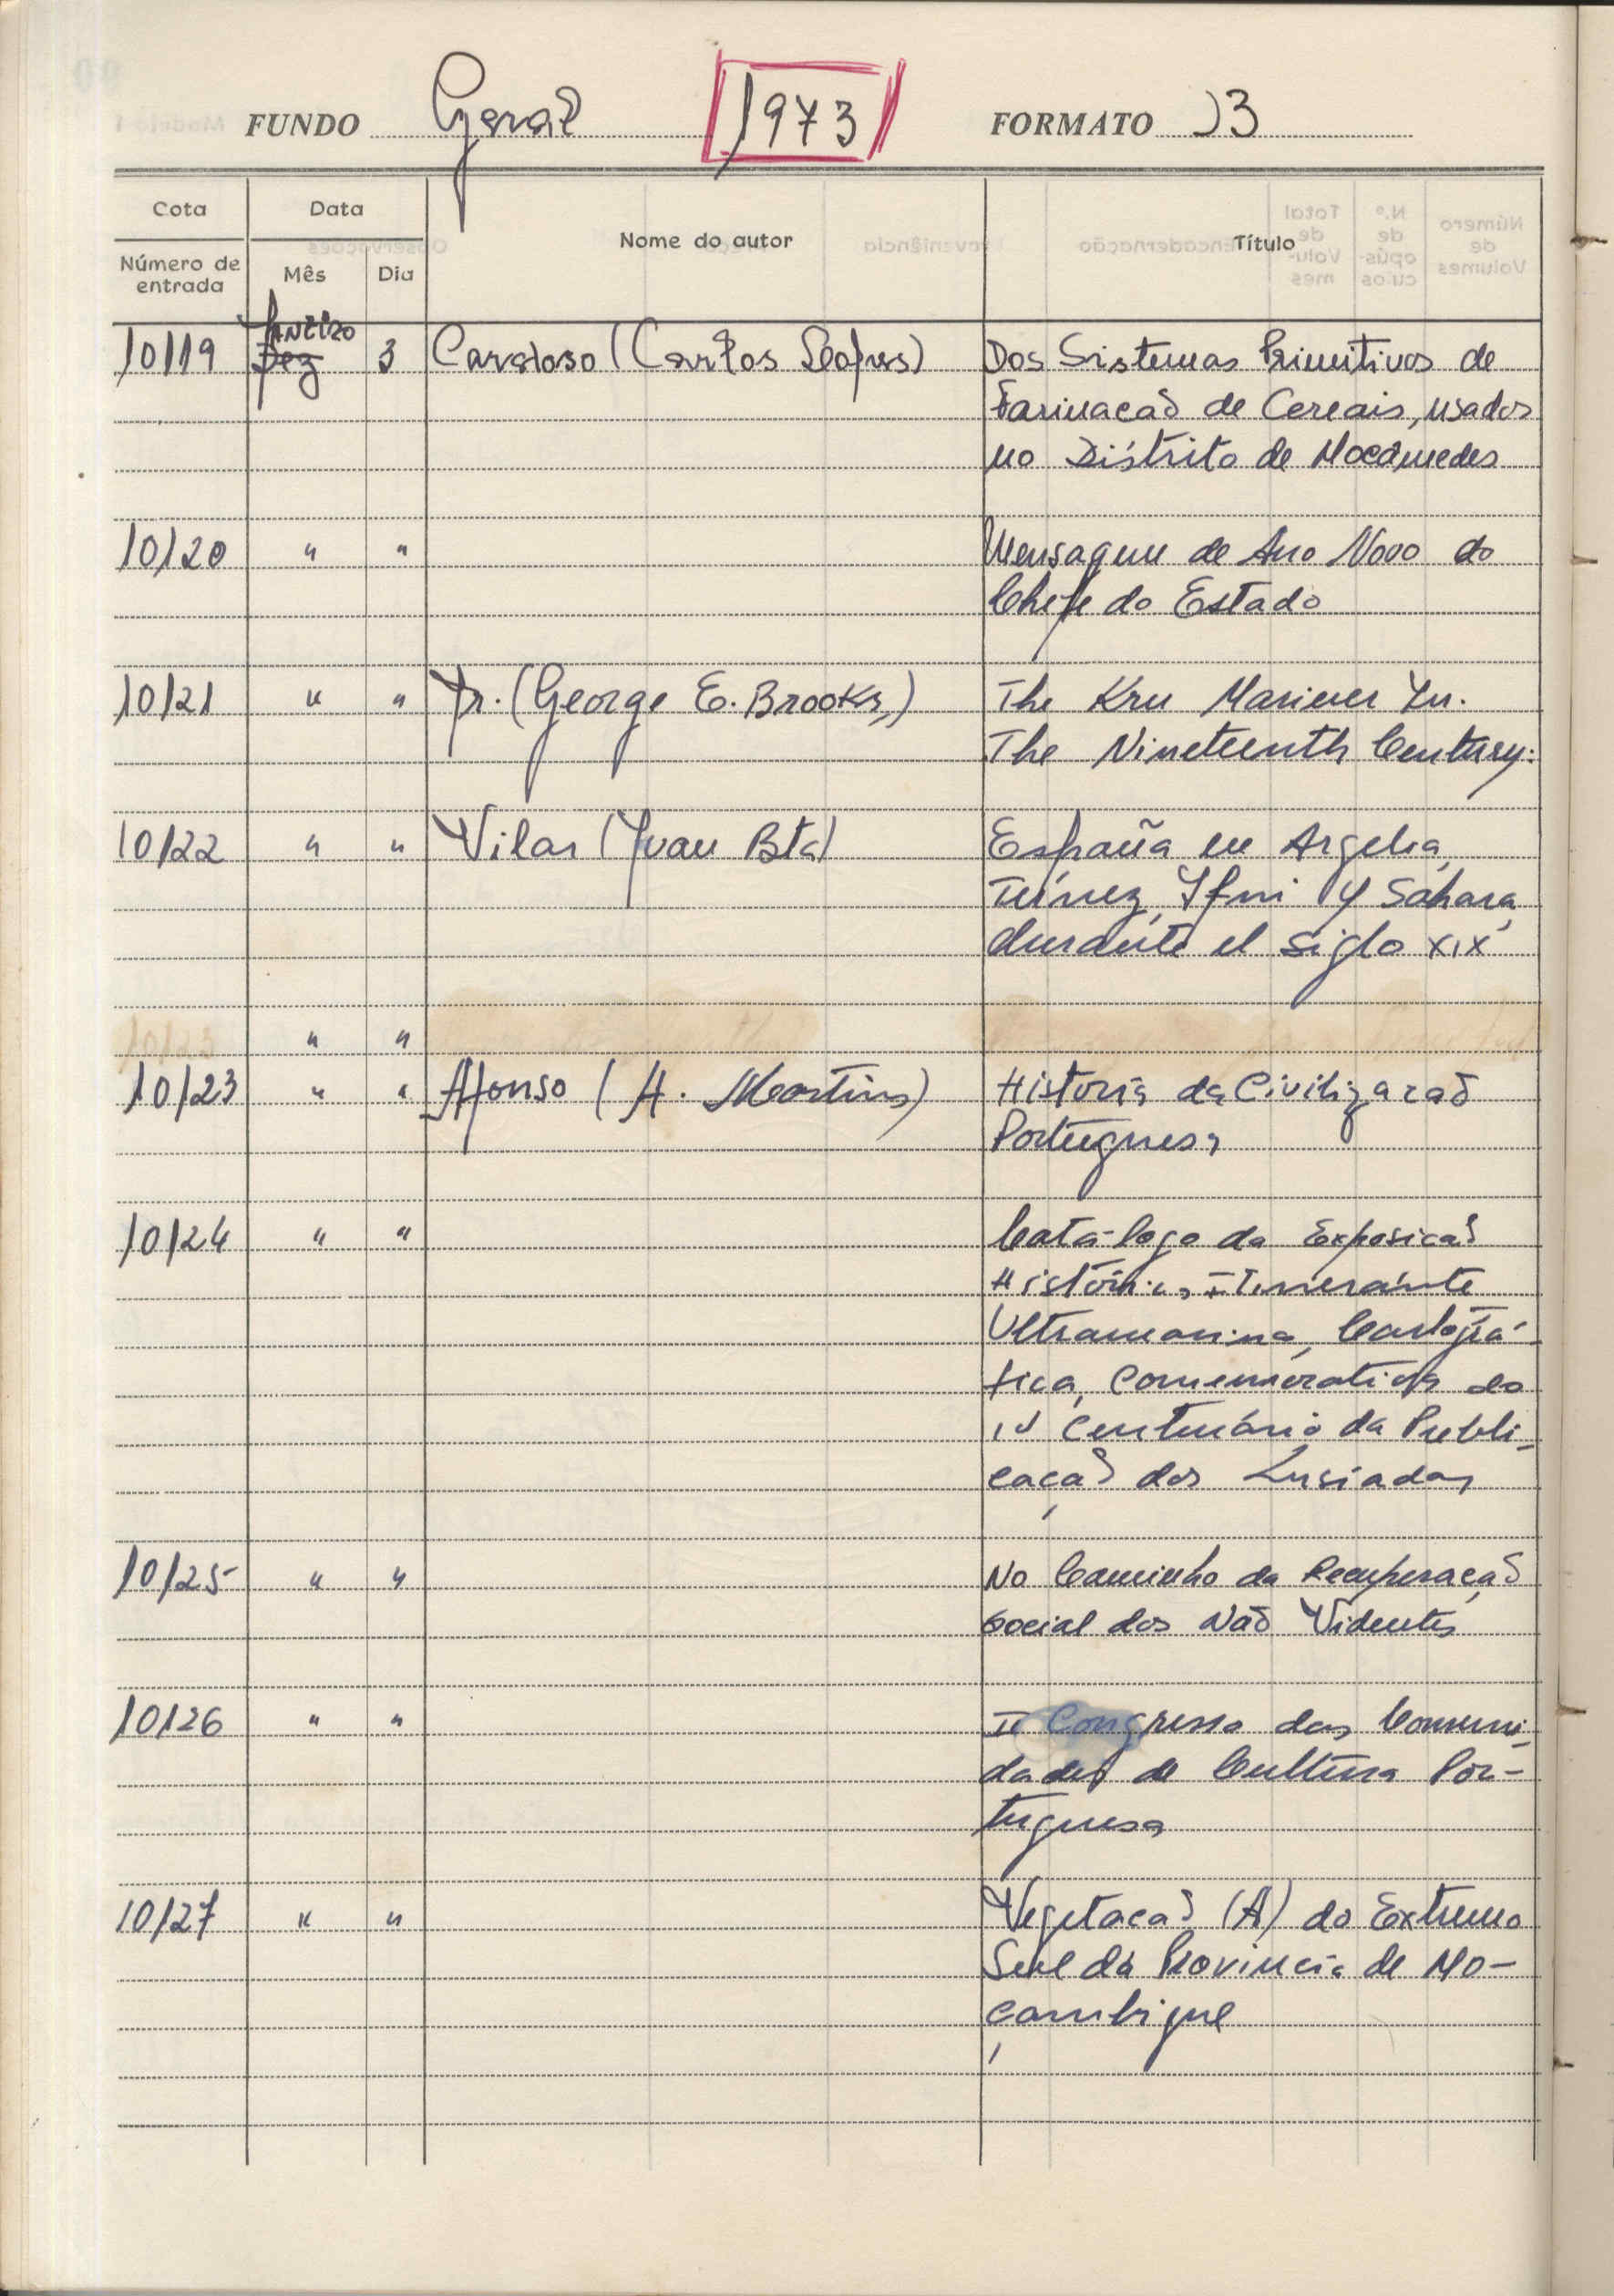 FUNDO Geral 1973 FORMATO 13
Cota Data Nome do autor Título
Número de entrada Mês Dia
Janeiro
10/19 Dez 3 Cardoso (Carlos Lopes) Dos Sistemas Primitivos de
Farinacão de Cereais, usados
no Distrito de Mocâmedes
10/20 " " Mensagem de Ano Novo do
Chefe do Estado
10/21 " " Jr. (George E. Brooks,) The Kru Mariner In.
The Nineteenth Century.
10/22 " " Vilar (Juan Bta) España en Argelia,
Túnez, Ifni y Sáhara,
durante el siglo XIX
10/23 " "
10/23 " " Afonso (A. Martins) Historia da Civilizacão
Portuguesa
10/24 " " Catálogo da Exposicão
Histórica, Itinerante
Ultramarina, Cartográ-
fica, Comemorativa do
IV Centenário da Publi-
cação dos Lusiadas
10/25 " " No Caminho da Recuperação
Social dos Não Videntes
10/26 " " II Congresso das Comuni-
dades de Cultura Por-
tuguesa
10/27 " " Vegetacão (A) do Extremo
Sul da Provincia de Mo-
çambique